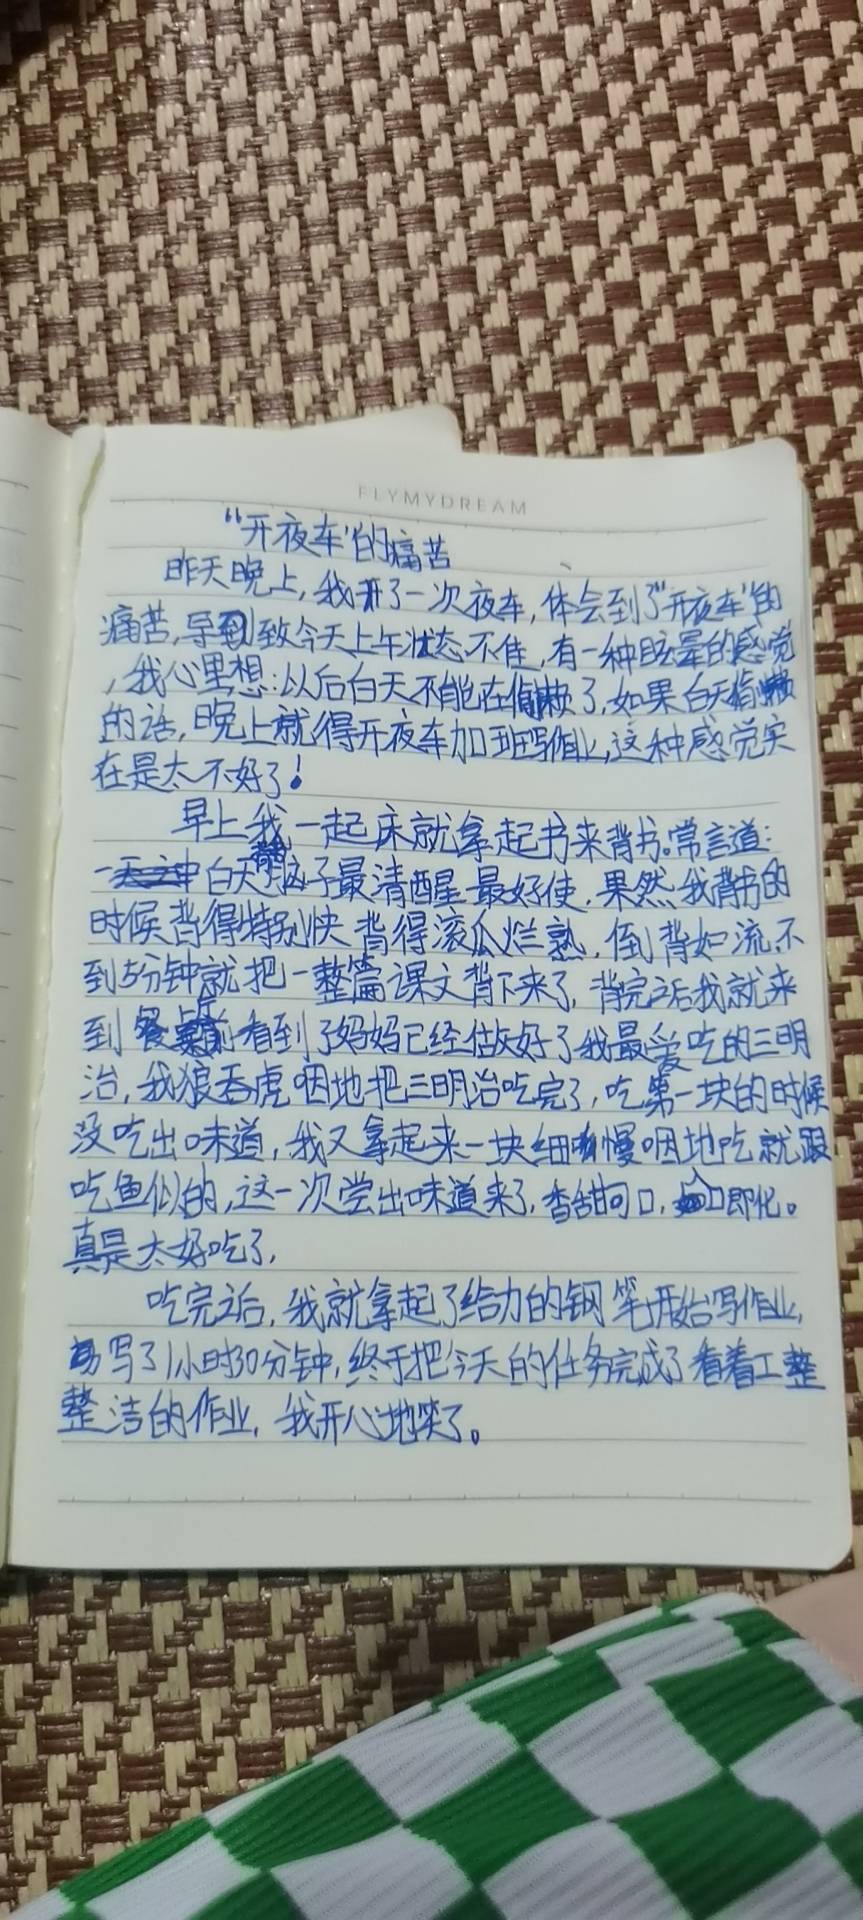 FLYMYDREAM
“开夜车”的痛苦
昨天晚上，我开了一次夜车，体会到了“开夜车”的
痛苦，导致今天上午状态不佳，有一种眩晕的感觉
，我心里想：以后白天不能在偷懒了，如果白天偷懒
的话，晚上就得开夜车加班写作业，这种感觉实
在是太不好了！
早上我一起床就拿起书来背书。常言道：
一白天脑子最清醒最好使，果然我背书的
时候背得特别快背得滚瓜烂熟，倒背如流，不
到5分钟就把一整篇课文背下来了，背完之后我就来
到餐桌前看到了妈妈已经做好了我最爱吃的三明
治，我狼吞虎咽地把三明治吃完了，吃第一块的时候
没吃出味道，我又拿起来一块细嚼慢咽地吃就跟
吃鱼似的，这一次尝出味道来了，香甜可口，入口即化。
真是太好吃了，
吃完之后，我就拿起了给力的钢笔开始写作业，
写了1小时30分钟，终于把今天的任务完成了看着工整
整洁的作业，我开心地笑了。